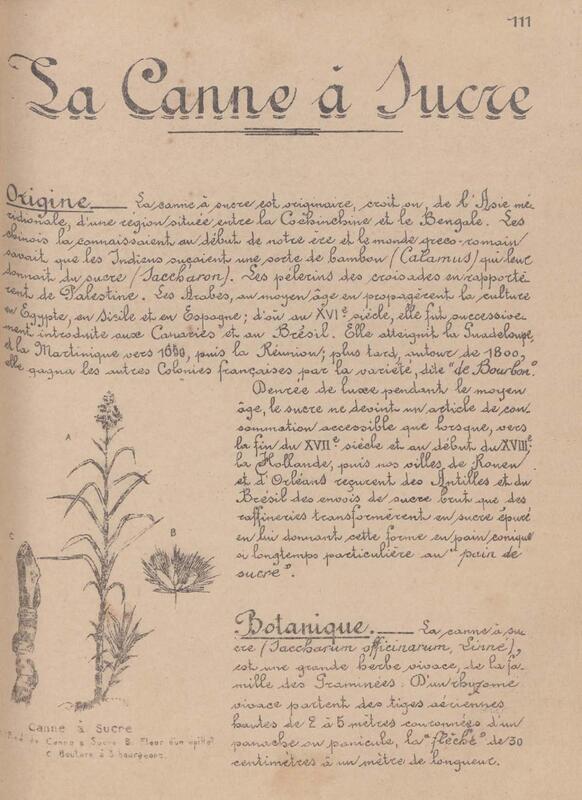 111
La Canne à Sucre
Origine. La canne à sucre est originaire, croit on, de l'Asie mé-
ridionale, d'une région située entre la Cochinchine et le Bengale. Les
chinois la connaissaient au début de notre ère et le monde greco-romain
savait que les Indiens suçaient une sorte de bambou (Calamus) qui leur
donnait du sucre (Saccharon). Les pélerins des croisades en rapporté-
rent de Palestine. Les Arabes, au moyen âge en propagèrent la culture
en Egypte, en Sicile et en Espagne; d'où au XVIe siècle, elle fut successive-
ment introduite aux Canaries et au Brésil. Elle atteignit la Guadeloupe,
et la Martinique vers puis la Réunion; plus tard, autour de 1800,
elle gagna les autres Colonies françaises par la variété, dite "de Bourbon".
Denrée de luxe pendant le moyen
âge, le sucre ne devint un article de con-
sommation accessible que lorsque, vers
la fin du XVIIe siècle et au début du XVIIIe
la Hollande, puis nos villes de Rouen
et d'Orléans reçurent des Antilles et du
Brésil des envois de sucre brut que des
raffineries transformèrent en sucre épuré
en lui donnant cette forme en pain conique
si longtemps particulière au "pain de
sucre".
A
B
C
Botanique. La canne à su-
cre (Saccharum officinarum, Linné),
est une grande herbe vivace, de la fa-
mille des Graminées. D'un rhyzome
vivace partent des tiges aériennes
hautes de 2 à 5 mètres couronnées d'un
panache ou panicule, la "flèche" de 30
centimètres à un mètre de longueur.
Canne à Sucre
Pied de Canne à Sucre B. Fleur d'un epillet
C. Bouture à 3 bourgeons.